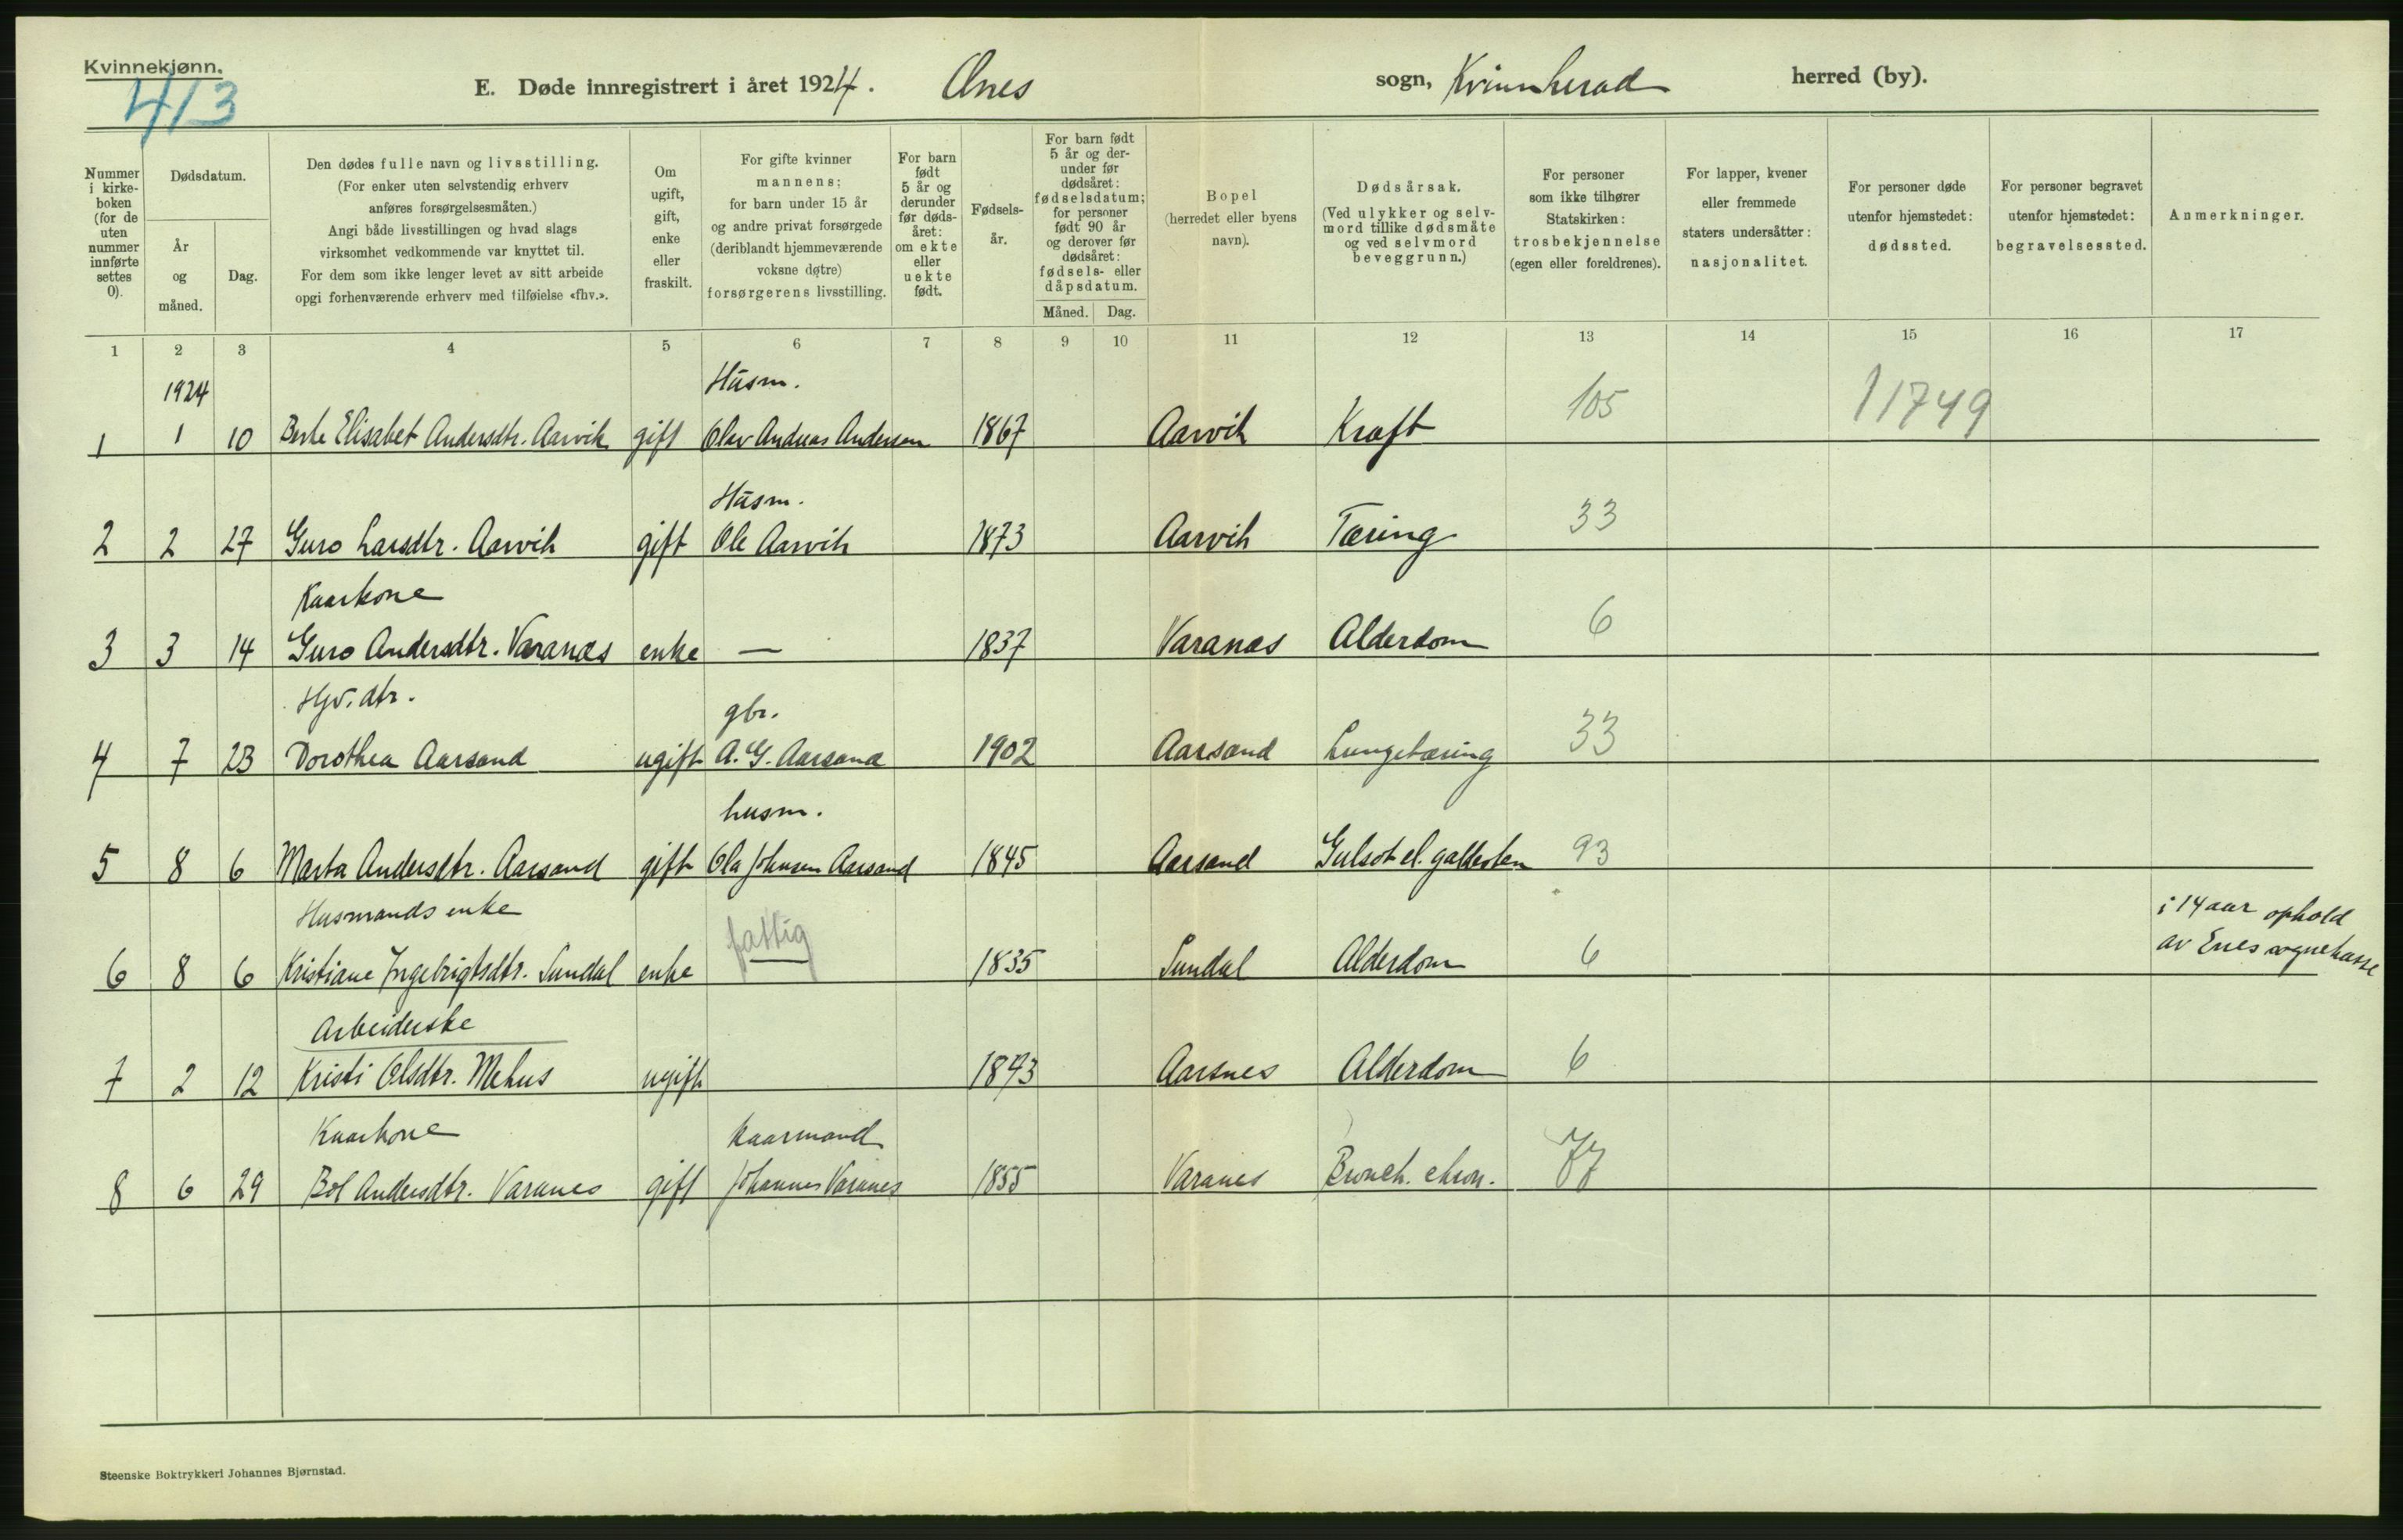 Kvinnekjønn.
413
E. Døde innregistrert i året 1924. Ænes sogn, Kvinnherad herred (by).
Nummer i kirkeboken (for de uten nummer innførte settes 0).
Dødsdatum.
År og måned.
Dag.
Den dødes fulle navn og livsstilling.
(For enker uten selvstendig erhverv
anføres forsørgelsesmåten.)
Angi både livsstillingen og hvad slags
virksomhet vedkommende var knyttet til.
For dem som ikke lenger levet av sitt arbeide
opgi forhenværende erhverv med tilføielse «fhv.».
Om ugift, gift, enke eller fraskilt.
For gifte kvinner
mannens;
for barn under 15 år
og andre privat forsørgede
(deriblandt hjemmeværende
voksne døtre)
forsørgerens livsstilling.
For barn født 5 år og derunder før dødsåret: om ekte eller uekte født.
Fødselsår.
For barn født
5 år og derunder før
dødsåret:
fødselsdatum;
for personer
født 90 år
og derover før
dødsåret:
fødsels- eller
dåpsdatum.
Måned. Dag.
Bopel
(herredet eller byens
navn).
Dødsårsak.
(Ved ulykker og selvmord tillike dødsmåte
og ved selvmord
beveggrunn.)
For personer
som ikke tilhører
Statskirken:
trosbekjennelse
(egen eller foreldrenes).
For lapper, kvener
eller fremmede
staters undersåtter:
nasjonalitet.
For personer døde
utenfor hjemstedet:
dødssted.
For personer begravet
utenfor hjemstedet:
begravelsessted.
Anmerkninger.
1 2 3 4 5 6 7 8 9 10 11 12 13 14 15 16 17
1924 Husm.
1 1 10 Berte Elisabet Andersdtr. Aarvik gift Olav Andreas Andersen 1867 Aarvik Kræft 105 11749
Husm.
2 2 27 Guro Larsdtr. Aarvik gift Ole Aarvik 1873 Aarvik Tæring 33
Kaarkone
3 3 14 Guro Andersdtr. Varanes enke — 1837 Varanes Alderdom 6
Hjv. dtr. gbr.
4 7 23 Dorothea Aarsand ugift A. G. Aarsand 1902 Aarsand Lungetæring 33
husm.
5 8 6 Marta Andersdtr. Aarsand gift Ola Johnsen Aarsand 1845 Aarsand Gulsot el. galdesten 93
Husmands enke fattig
6 8 6 Kristiane Ingebrigtsdtr. Sundal enke — 1835 Sundal Alderdom 6 i 14 aar ophold
av Enes sognekasse
Arbeiderske
7 2 12 Kristi Olsdtr. Mehus ugift 1843 Aarsnes Alderdom 6
Kaarkone kaarmand
8 6 29 Bol Andersdtr. Varanes gift Johannes Varanes 1855 Varanes Bronch. chron. 77
Steenske Boktrykkeri Johannes Bjørnstad.